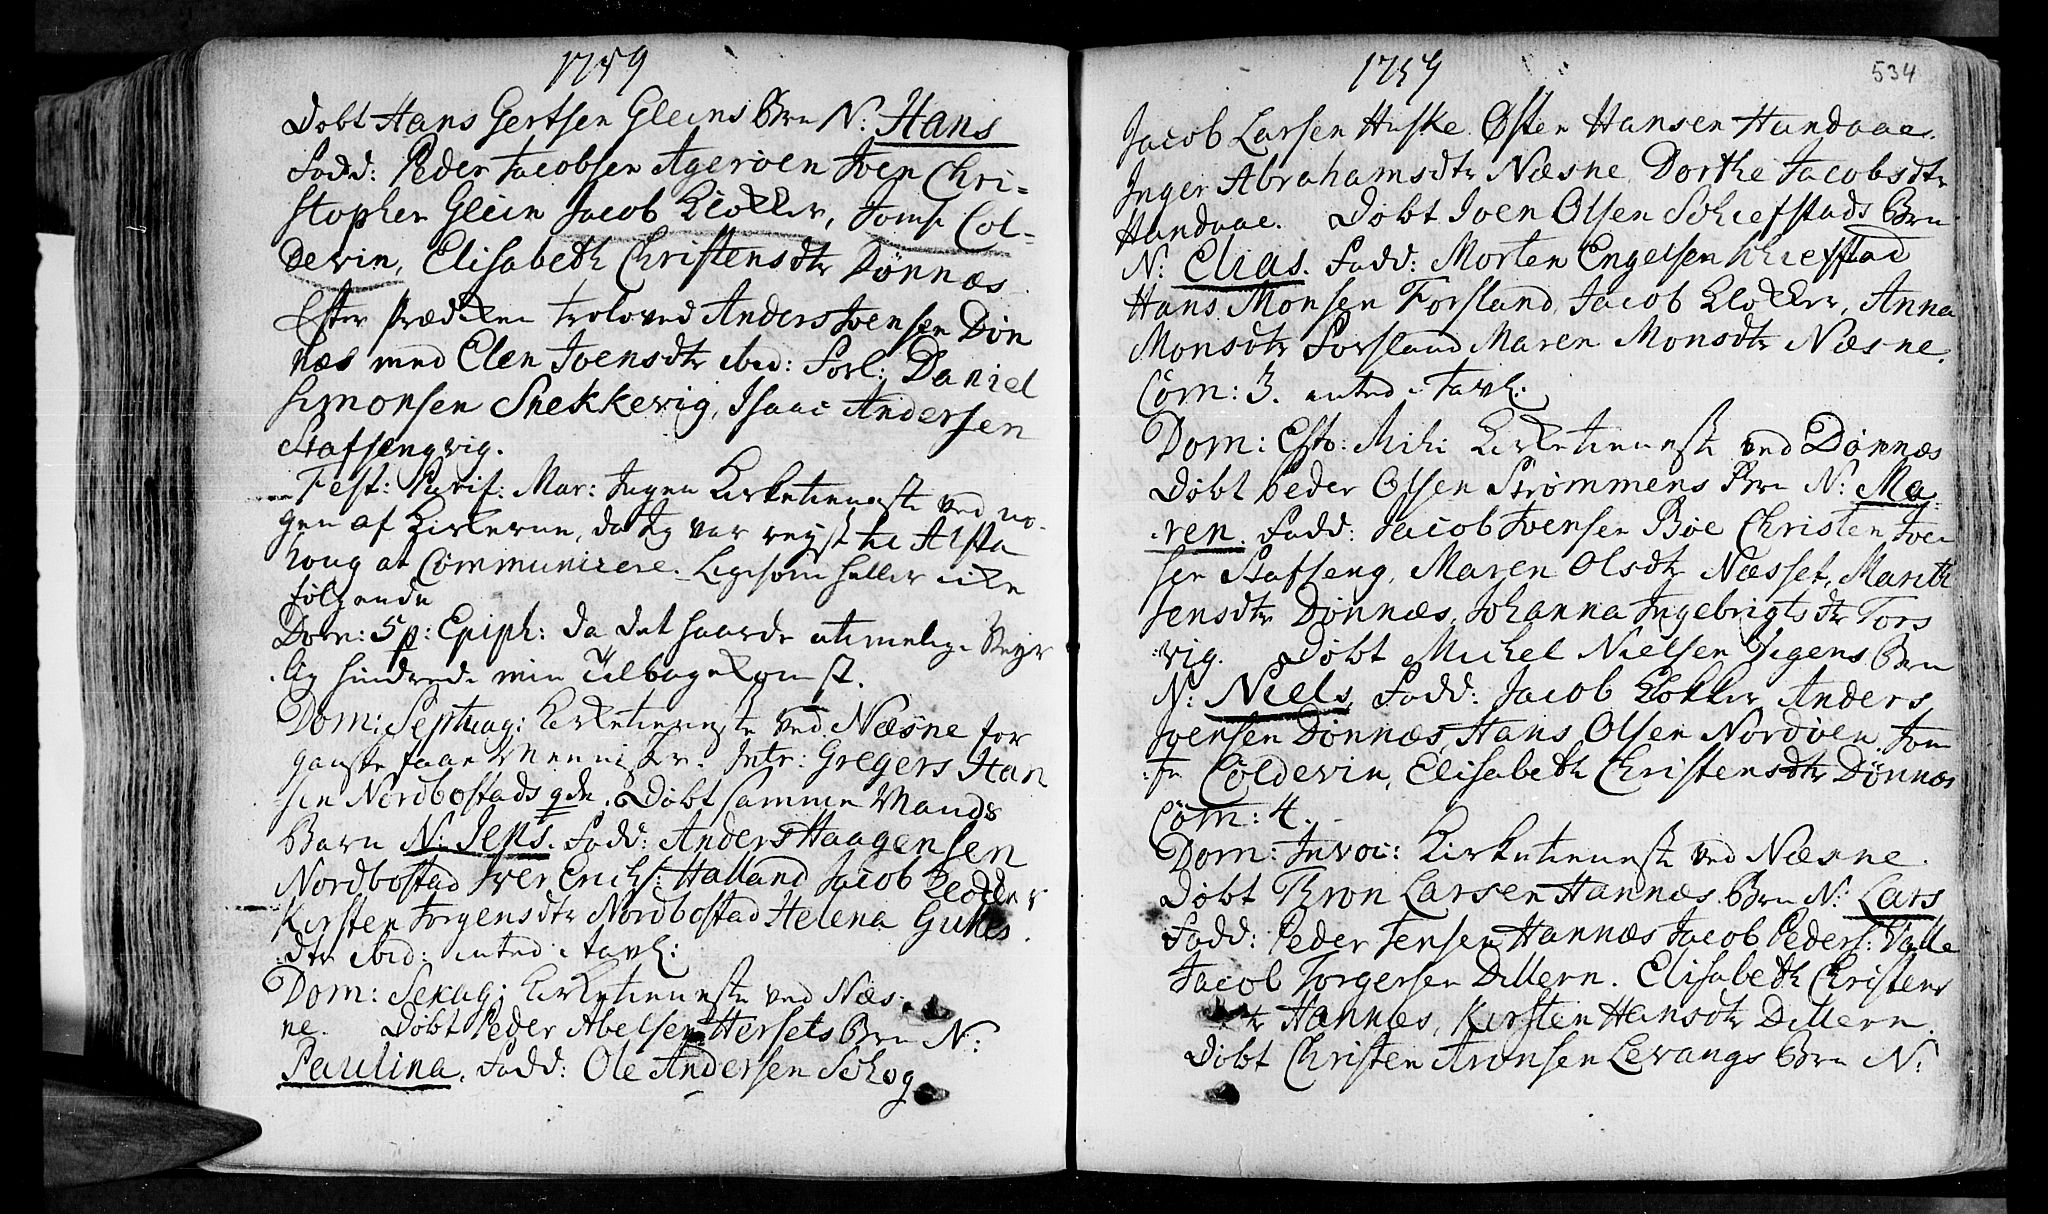 1759
Døbt Hans Gertsen Gleins Brn N: Hans
Fadd: Peder Jacobsen Agerøen Iven Chri-
stopher Glein Jacob Klokker, Jomfr Col-
devin, Elisabeth Christensdtr Dønnæs
Efter Prædiken troloved Anders Ivensen Døn
næs med Elen Ivensdtr ibid: Forl: Daniel
Simonsen Snekkevig, Isaac Andersen
Stafsengvig.
Fest: Purif: Mar: Ingen Kirketieneste ved no-
gen af Kirkerne, da ieg var reyst til Alsta
houg at Communicere. Ligesom heller icke
følgende
Dom: 5 p: Epiph: da det haarde utimelige Veyr
lig hindrede min Tilbagekomst.
Dom: Septuag: Kirketieneste ved Næsne for
ganske faae Mennisker. Intr: Gregers Han
sen Nordbostads qdn. Døbt samme Mands
Barn N: Jens. Fadd: Anders Haagensen
Nordbostad Iver Erichs: Halland Jacob Klokker
Kirsten Jørgensdtr Nordbostad Helena Gunnes
dtr ibid: inted i Tavl:
Dom: Sexag: Kirketieneste ved Næs-
ne. Døbt Peder Abelsen Hersets Brn N:
Paulina, Fadd: Ole Andersen Schog
1759
534
Jacob Larsen Huske Østen Hansen Handaae.
Inger Abrahamsdtr Næsne, Dorthe Jacobsdtr
Handaae. Døbt Iven Olsen Schiefstads Brn
N: Elias. Fadd: Morten Engelsen Schiefstad
Hans Monsen Forsland, Jacob Klokker, Anna
Monsdtr Forsland Maren Monsdtr Næsne.
Com: 3. inted i Tavl:
Dom: Esto: Mihi Kirketieneste ved Dønnæs
Døbt Peder Olsen Strømmens Brn N: Ma
ren. Fadd: Jacob Ivensen Bøe Christen Iven
sen Stafseng, Maren Olsdtr Næsset, Marith
Jensdtr Dønnæs, Johanna Ingebrigtsdtr Tors
vig. Døbt Michel Nielsen Tegens Brn
N: Niels, Fadd: Jacob Klokker Anders
Ivensen Dønnæs, Hans Olsen Nordøen, Jom
fr Coldevin, Elisabeth Christensdtr Dønnæs
Com: 4.
Dom: Invoc: Kirketieneste ved Næsne.
Døbt Tron Larsen Hannæs Brn N: Lars
Fadd: Peder Jensen Hannæs Jacob Peders: Valle
Jacob Torgersen Dillern. Elisabeth Christens
dtr Hannæs, Kirsten Hansdtr Dillern.
Døbt Christen Aronsen Levangs Brn N: